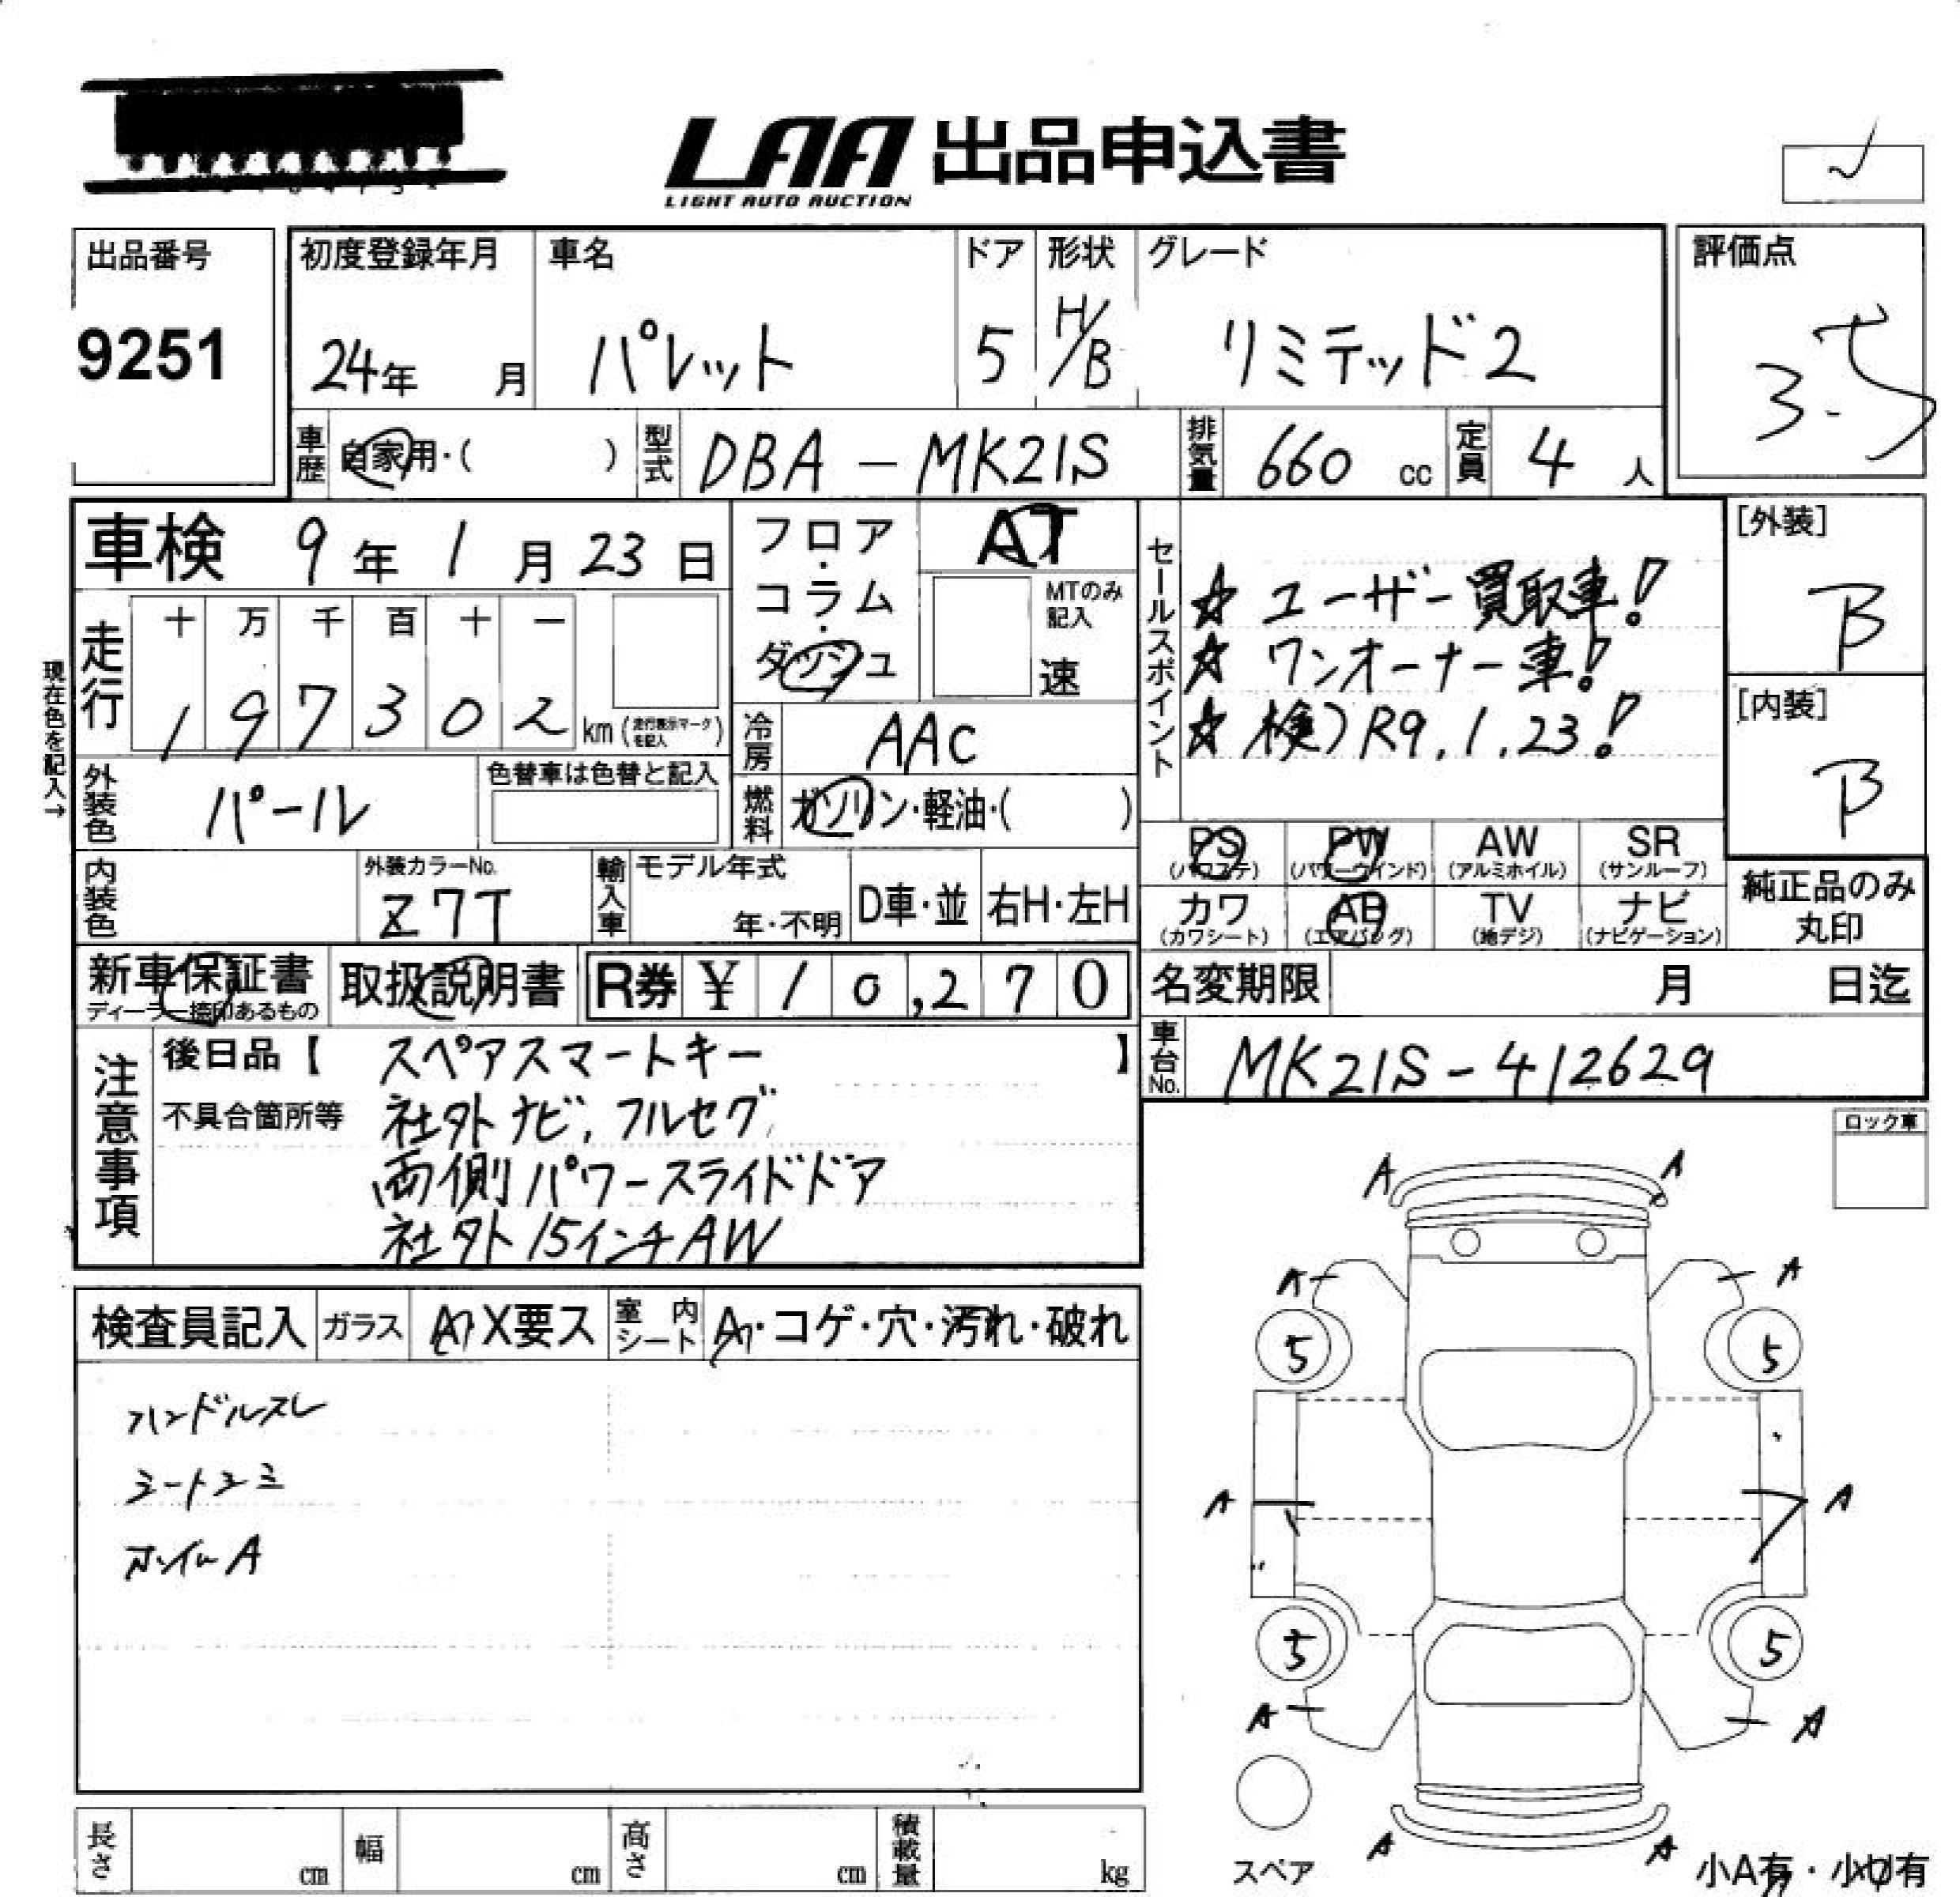 LAA 出品申込書
LIGHT AUTO AUCTION
出品番号
9251
初度登録年月
24年 月
車名
パレット
ドア
5
形状
H/B
グレード
リミテッド2
評価点
3.5
車歴 自家用・( )
型式 DBA-MK21S
排気量 660 cc
定員 4 人
車検 9年 1月 23日
フロア・コラム・ダッシュ
AT
MTのみ記入
速
セールスポイント
☆ ユーザー買取車!
☆ ワンオーナー車!
☆ 検)R9.1.23!
[外装]
B
[内装]
B
現在色を記入→
走行
十 万 千 百 十 一
1 9 7 3 0 2 km (走行表示マークを記入)
冷房 AAC
外装色 パール
色替車は色替と記入
燃料 ガソリン・軽油・( )
PS (パワステ)
PW (パワーウインド)
AW (アルミホイル)
SR (サンルーフ)
内装色
外装カラーNo.
Z7T
輸入車
モデル年式
年・不明
D車・並
右H・左H
カワ (カワシート)
AB (エアバッグ)
TV (地デジ)
ナビ (ナビゲーション)
純正品のみ
丸印
新車保証書
ディーラー捺印あるもの
取扱説明書
R券 ¥ 10,270
名変期限 月 日迄
車台No. MK21S-412629
注意事項
後日品【 スペアスマートキー 】
不具合箇所等 社外ナビ,フルセグ
両側パワースライドドア
社外15インチAW
ロック車
検査員記入
ガラス A X要ス
室内シート A・コゲ・穴・汚れ・破れ
ハンドルスレ
シートシミ
ホイルA
A A
A A
5 5
A A
5 5
A A
A A
スペア
小A有・小U有
長さ cm
幅 cm
高さ cm
積載量 kg